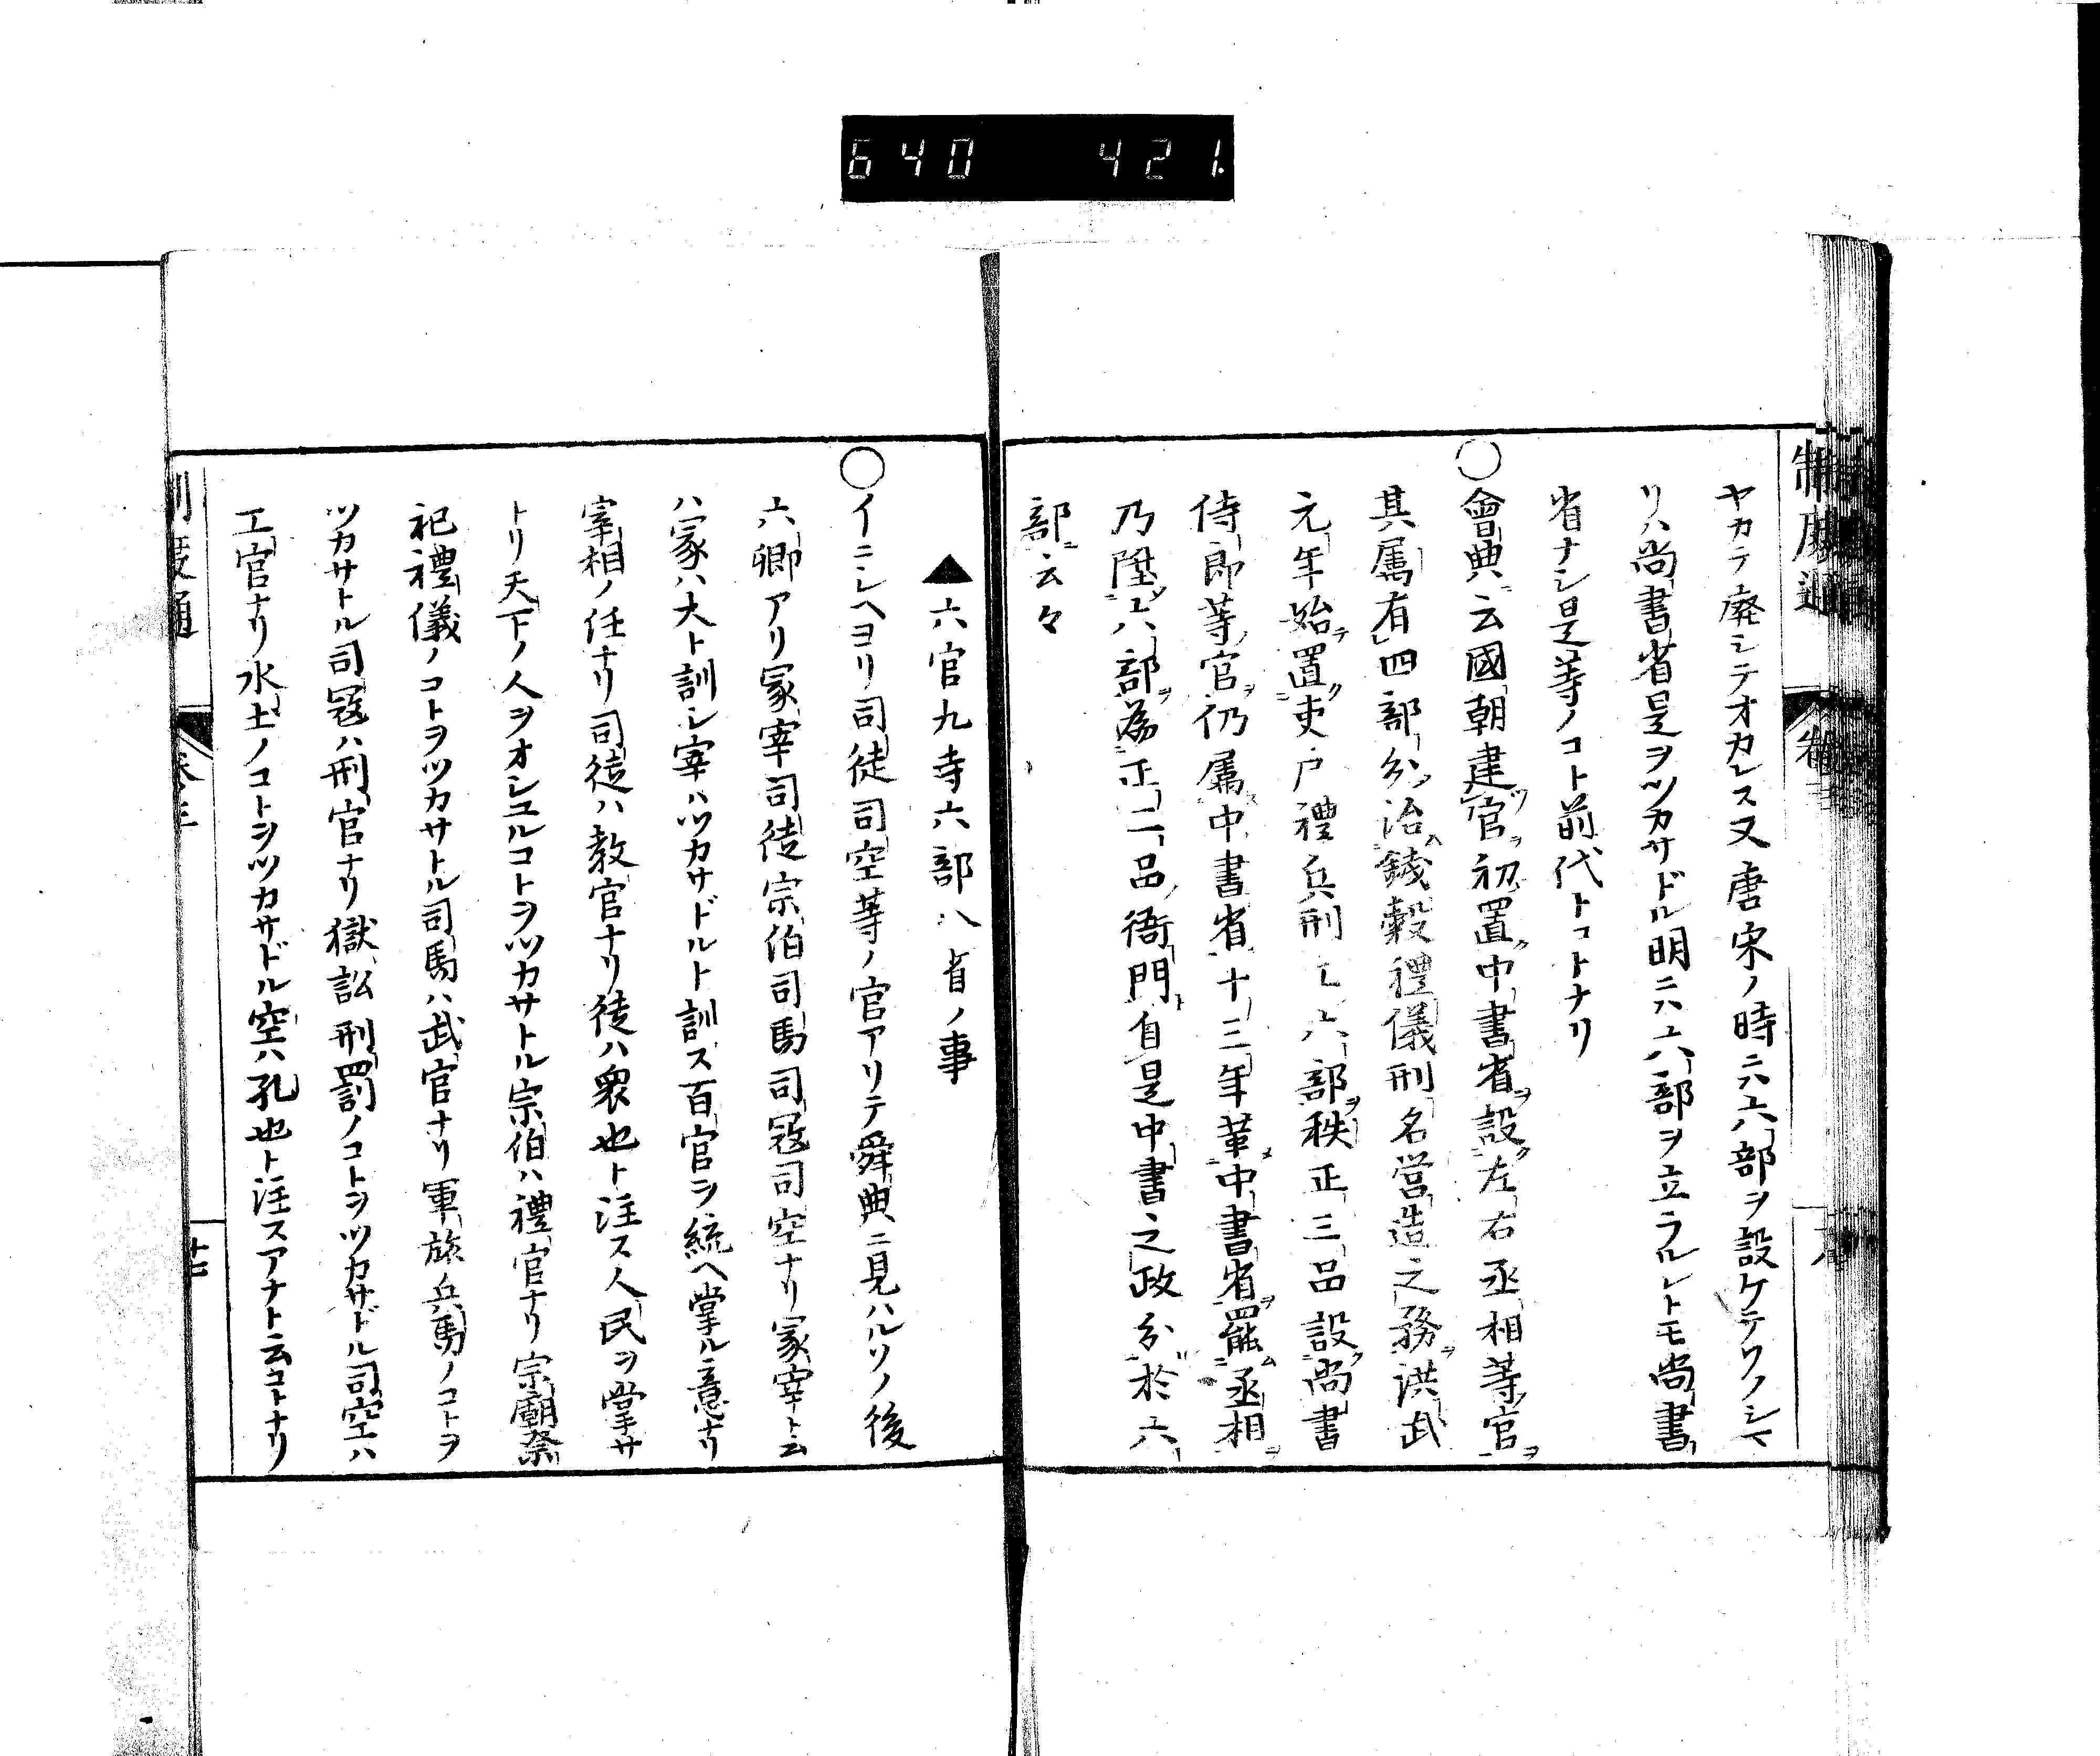 640 421.
制度通
ヤカテ廃シテオカレス又唐宋ノ時ニハ六部ヲ設ケテソノシマ
リハ尚書省是ヲツカサドル明ニハ六部ヲ立ラルレトモ尚書
省ナシ是等ノコト前代トコトナリ
〇會典云國朝建官初置中書省設左右丞相等官
其属有四部分治錢穀禮儀刑名営造之務洪武
元年始置吏戸禮兵刑工六部秩正三品設尚書
侍郎等官仍属中書省十三年革中書省罷丞相
乃陞六部為正二品衙門自是中書之政分於六
部云々
▲六官九寺六部八省ノ事
〇イニシヘヨリ司徒司空等ノ官アリテ舜典ニ見ハルソノ後
六卿アリ冢宰司徒宗伯司馬司冦司空ナリ冢宰ト云
ハ冢ハ大ト訓シ宰ハツカサドルト訓ス百官ヲ統ヘ掌ル意ナリ
宰相ノ任ナリ司徒ハ教官ナリ徒ハ衆也ト注ス人民ヲ掌サ
トリ天下ノ人ヲオシユルコトヲツカサトル宗伯ハ禮官ナリ宗廟祭
祀禮儀ノコトヲツカサトル司馬ハ武官ナリ軍旅兵馬ノコトヲ
ツカサトル司冦ハ刑官ナリ獄訟刑罰ノコトヲツカサドル司空ハ
工官ナリ水土ノコトヲツカサドル空ハ孔也ト注スアナト云コトナリ
制度通 巻三 十七